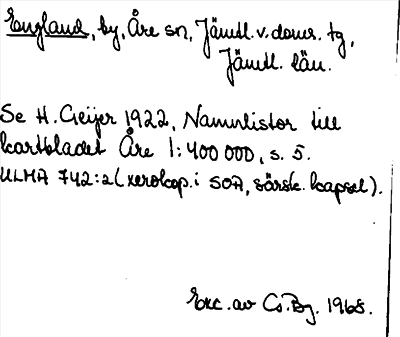 England, by, Åre sn, Jämtl. v. doms. tg,
Jämtl. län.
Se H. Geijer 1922, Namnlistor till
kartbladet Åre 1:400 000, s. 5.
ULMA 742:2 (xerokop. i SOA, särsk. kapsel).
Exc. av Cs. Bg. 1968.